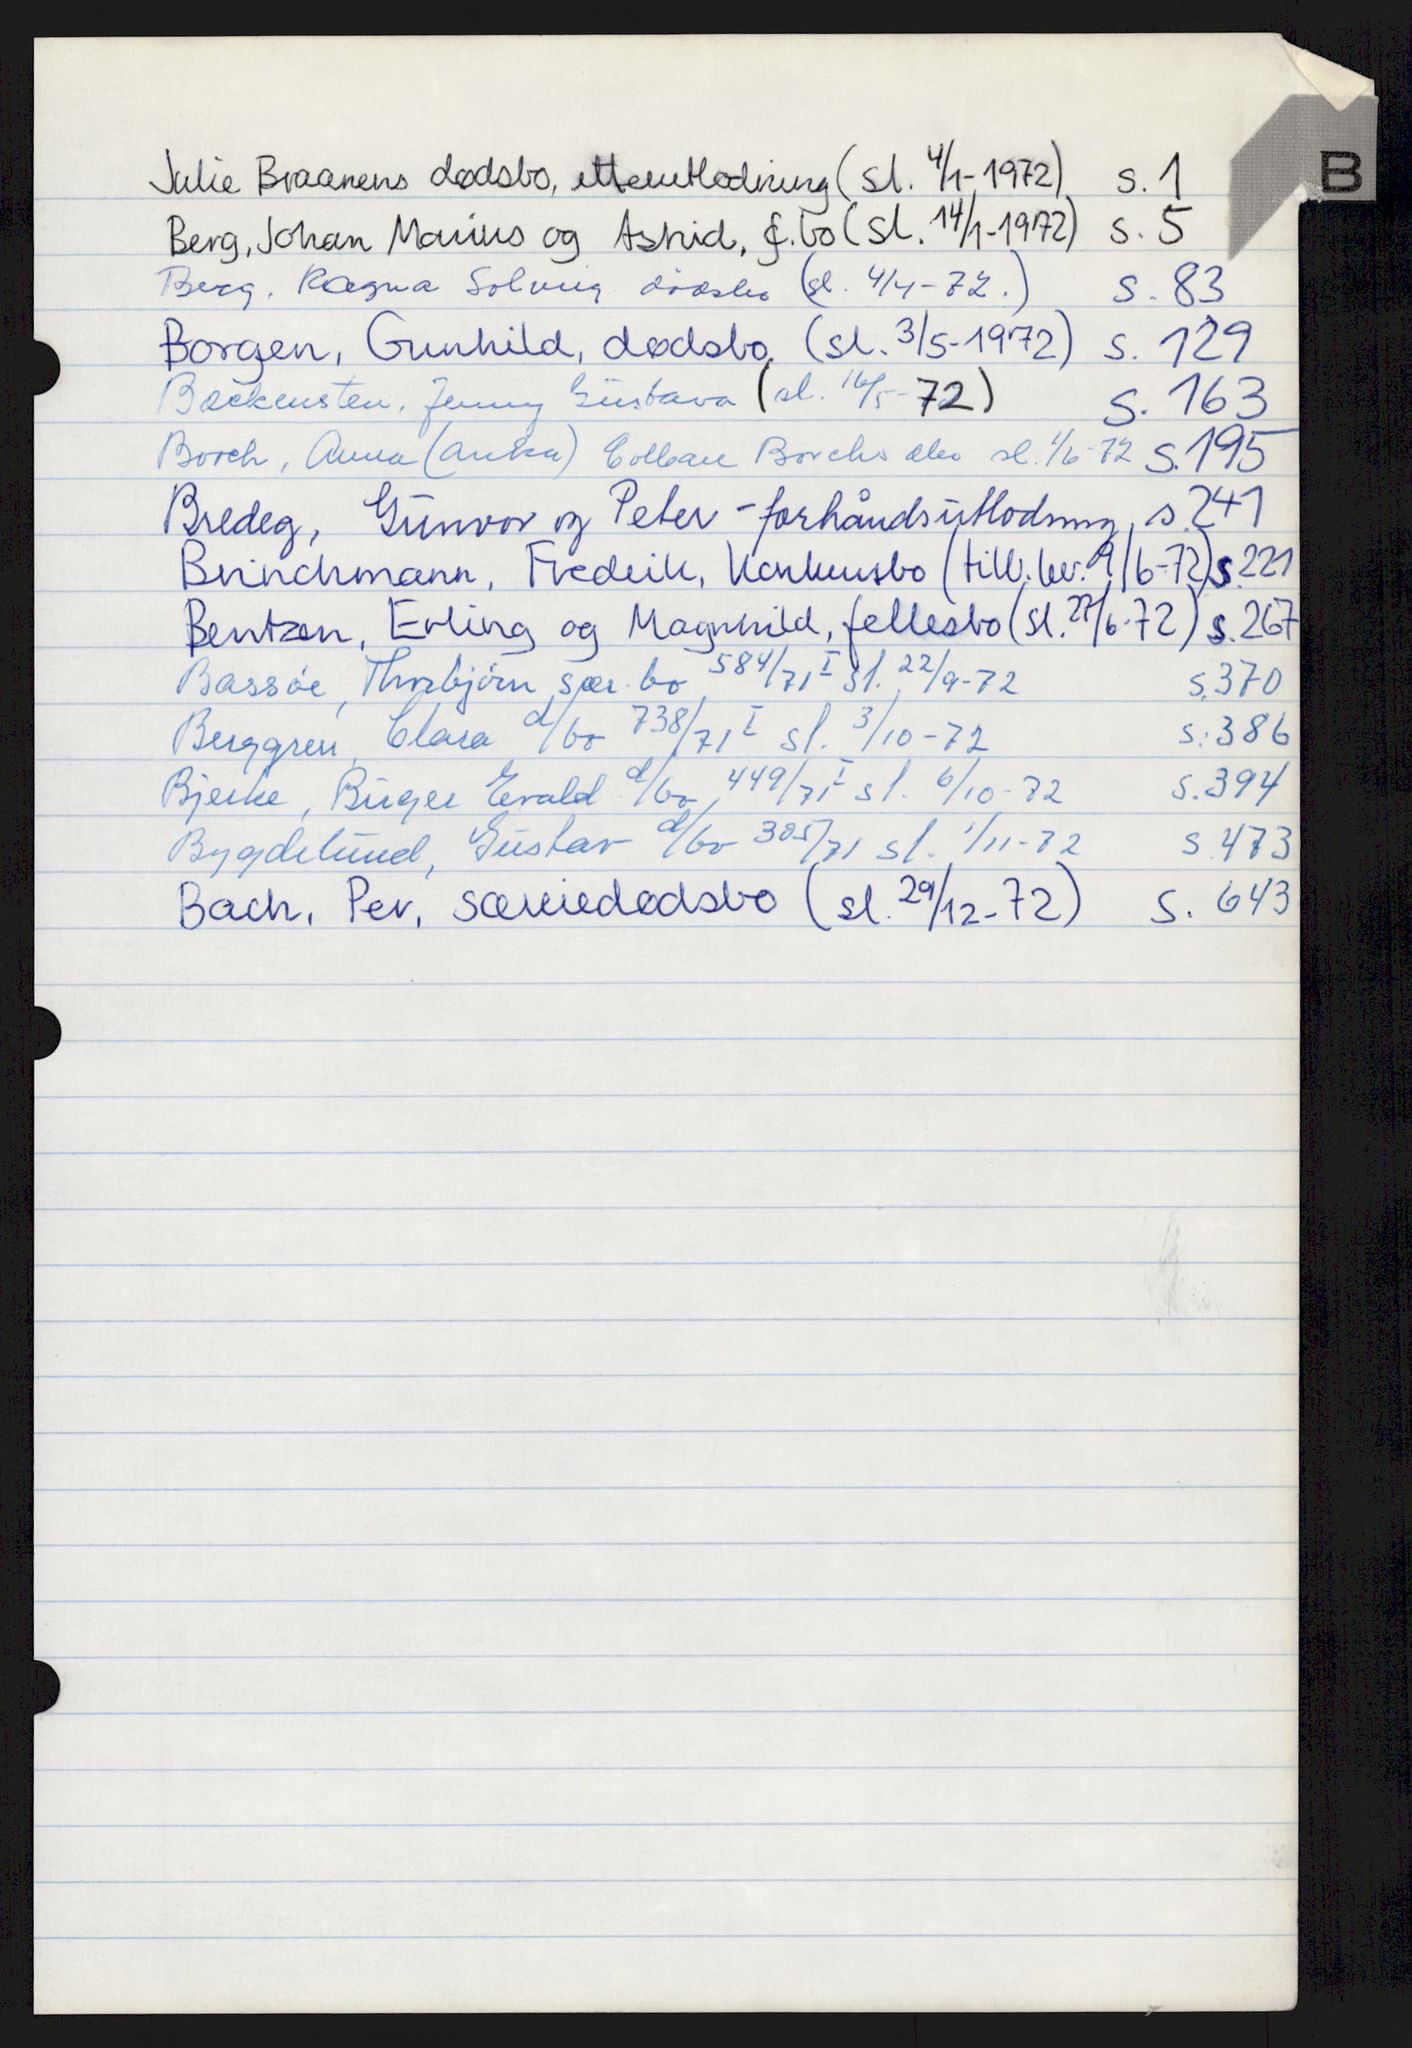 B
Julie Braanens dødsbo, etterutlodning (sl. 4/1-1972) s. 1
Berg, Johan Marius og Astrid, f.bo (sl. 14/1-1972) s. 5
Berg, Ragna Solveig dödsbo (sl. 4/4-72.) s. 83
Borgen, Gunhild, dødsbo (sl. 3/5-1972) s. 129
Backensten, Jenny Gustava (sl. 16/5-72) s. 163
Borch, Anna (Anka) Colban Borchs dbo sl. 1/6-72 s. 195
Bredeg, Gunvor og Peter - forhåndsutlodning s. 241
Brinchmann, Fredrik, Konkursbo (tilb.lev. 9/6-72) s. 221
Bentzen, Erling og Magnhild, fellesbo (sl. 27/6-72) s. 267
Bassöe, Thorbjörn sær.bo 584/71 I sl. 22/9-72 s. 370
Berggren, Clara d/bo 738/71 I sl. 3/10-72 s. 386
Bjerke, Birger Evald d/bo 449/71 I sl. 6/10-72 s. 394
Bygdelund, Gustav d/bo 305/71 sl. 1/11-72 s. 473
Bach, Per, særeiedødsbo (sl. 29/12-72) s. 643